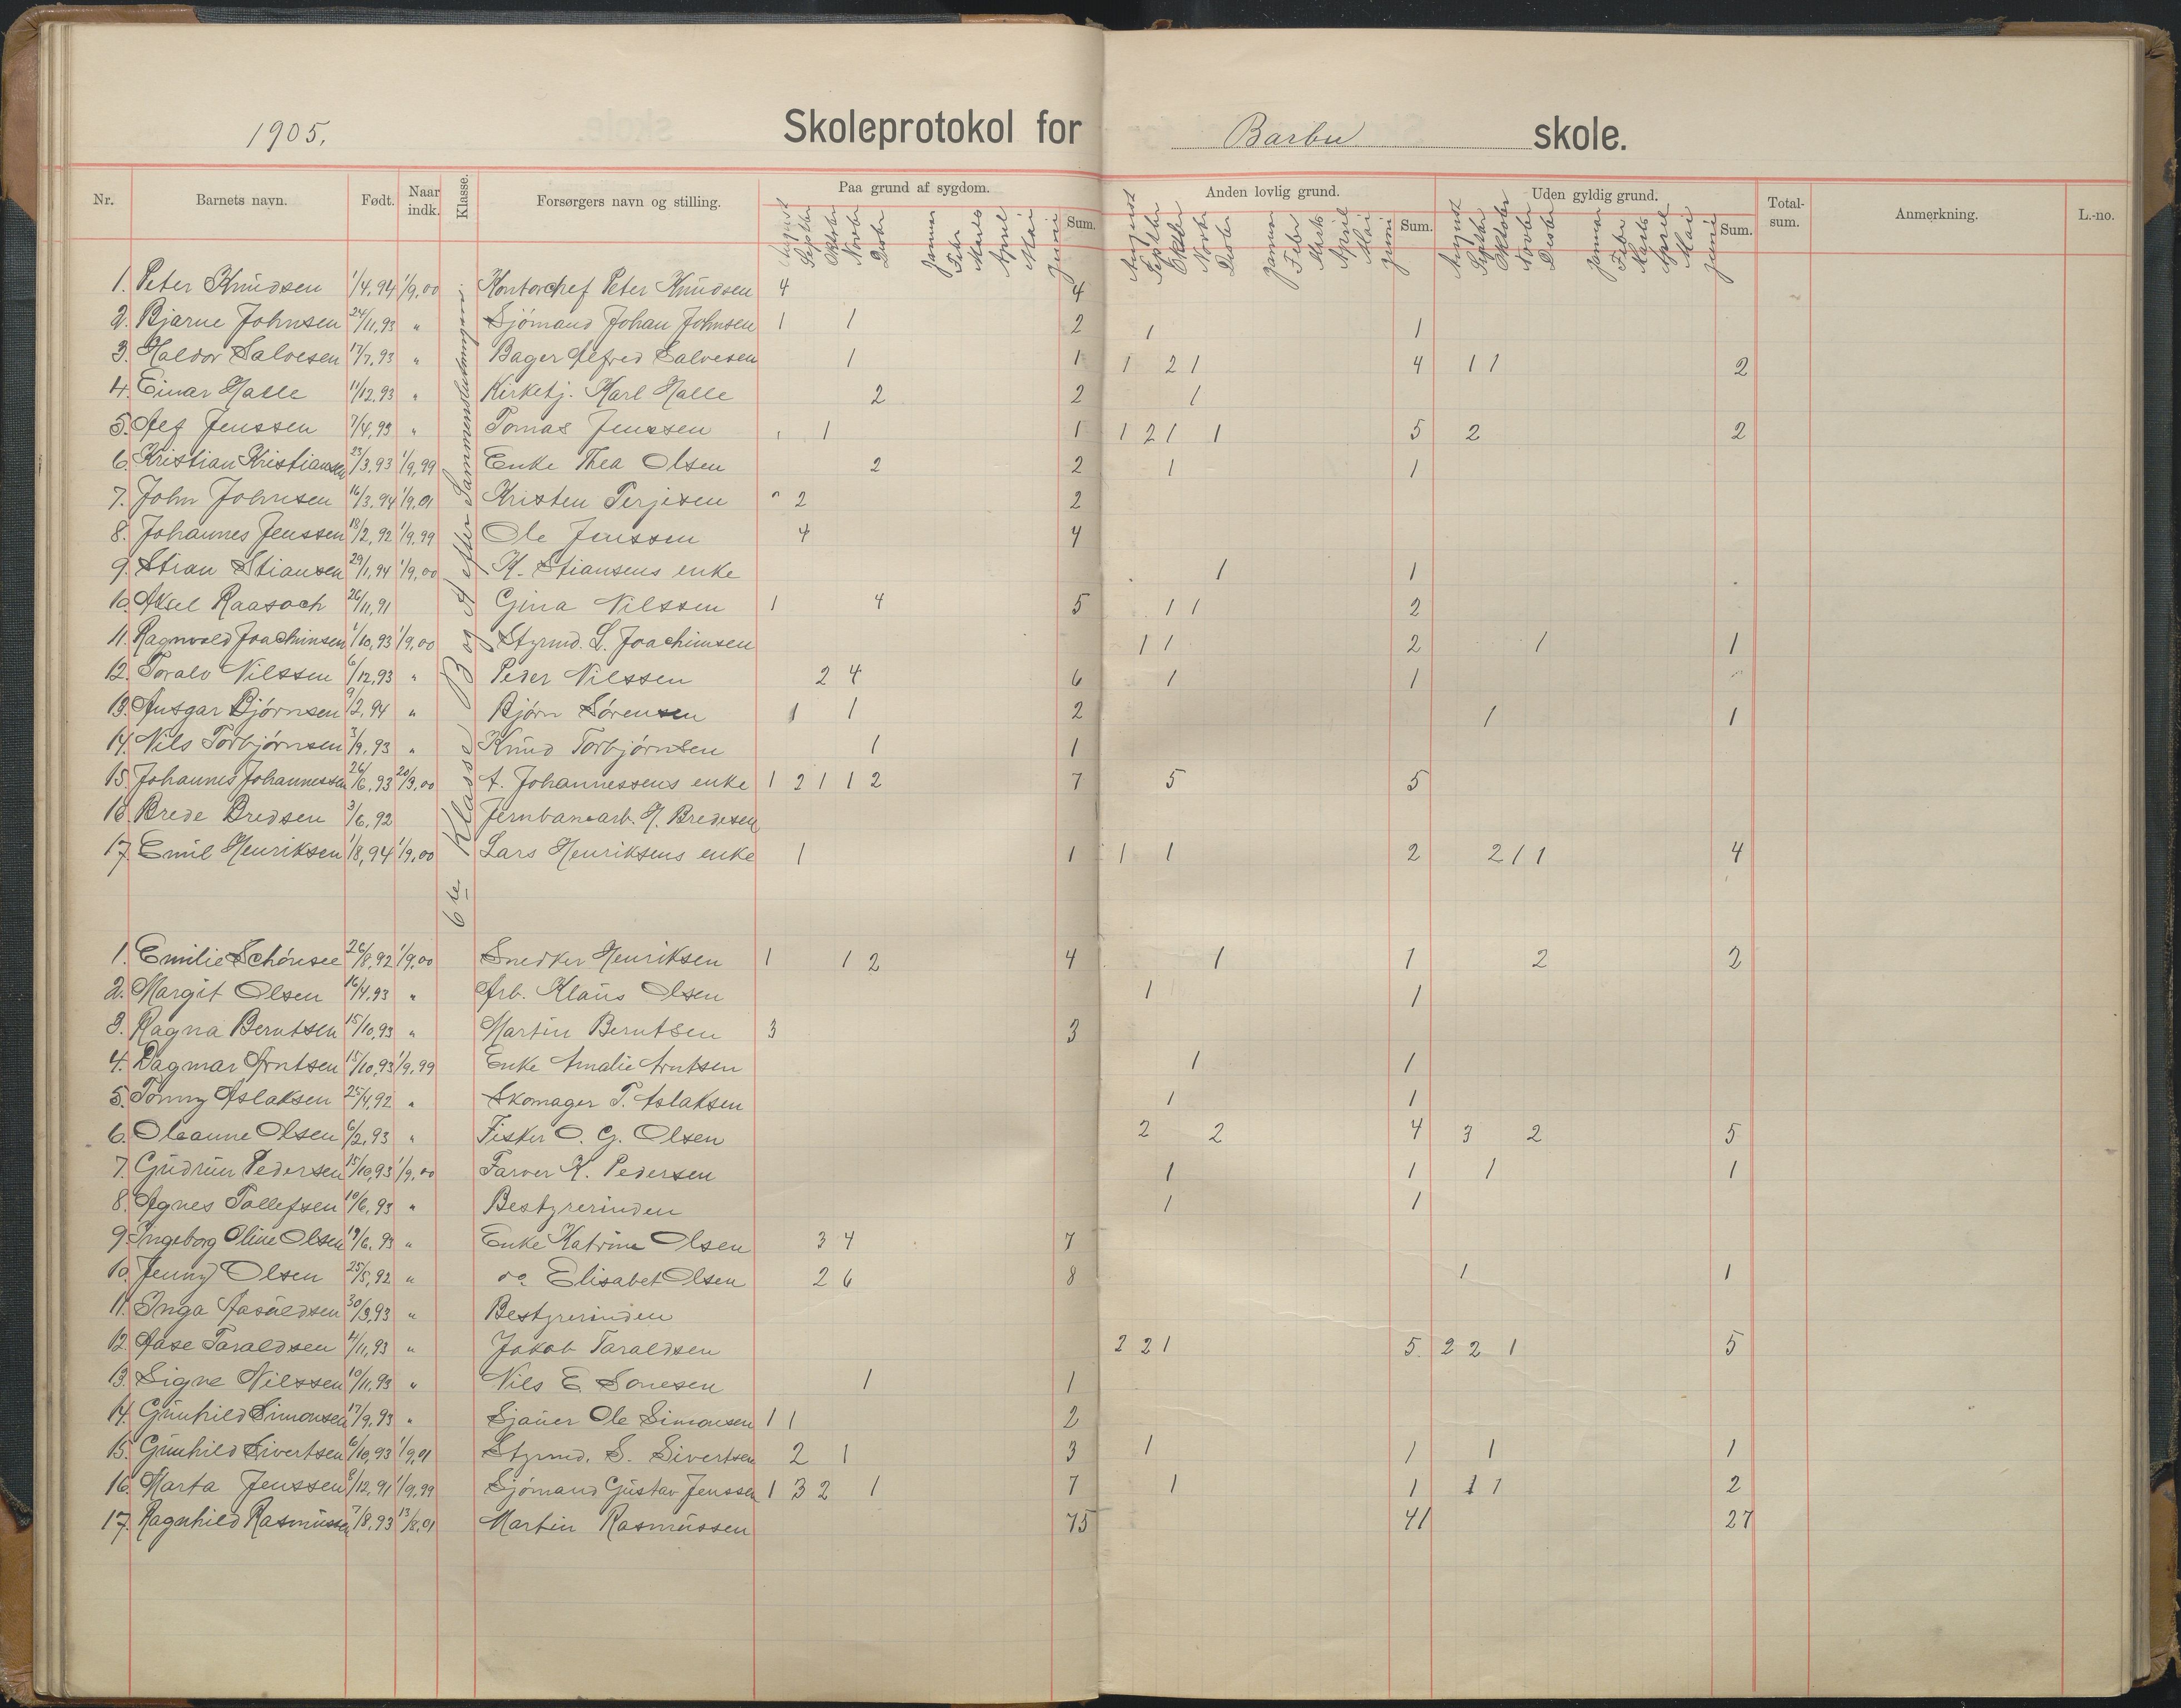 1905. Skoleprotokol for Barbu skole.
Nr. Barnets navn. Født. Naar indk. Klasse. Forsørgers navn og stilling. Paa grund af sygdom. Sum. Anden lovlig grund. Sum. Uden gyldig grund. Sum. Total-sum. Anmerkning. L.-no.
August Septbr Oktobr Novbr Desbr Januar Febr Marts April Mai Juni August Septbr Oktbr Novbr Desbr Januar Febr Marts April Mai Juni August Septbr Oktober Novbr Desbr Januar Febr Marts April Mai Juni
6te Klasse B og A efter Sammenslutningen.
1. Peter Knudsen 1/4,94 1/9,00 Kontorchef Peter Knudsen 4 4
2. Bjarne Johnsen 24/11,93 " Sjömand Johan Johnsen 1 1 2 1 1
3. Haldor Salvesen 17/7,93 " Bager Alfred Salvesen 1 1 1 2 1 4 1 1 2
4. Einar Halle 11/12,93 " Kirketj. Karl Halle 2 2 1
5. Alf Jenssen 7/4,93 " Tomas Jenssen 1 1 1 2 1 1 5 2 2
6. Kristian Kristiansen 23/3,93 1/9,99 Enke Thea Olsen 2 2 1 1
7. John Johnsen 16/3,94 1/9,01 Kristen Terjesen 2 2
8. Johannes Jenssen 18/2,92 1/9,99 Ole Jenssen 4 4
9. Stian Stiansen 29/1,94 1/9,00 K. Stiansens enke 1 1
10. Aksel Raasoch 26/11,91 Gina Nilssen 1 4 5 1 1 2
11. Ragnvald Joachimsen 1/10,93 1/9,00 Styrmd. L. Joachimsen 1 1 2 1 1
12. Toralv Nilssen 6/12,93 " Peder Nilssen 2 4 6 1 1
13. Ansgar Bjørnsen 9/2,94 " Bjørn Sørensen 1 1 2 1 1
14. Nils Torbjørnsen 3/9,93 " Knud Torbjørnsen 1 1
15. Johannes Johannessen 26/6,93 20/9,00 A. Johannessens enke 1 2 1 1 2 7 5 5
16. Brede Bredsen 3/6,92 Jernbanearb. H. Bredesen
17. Emil Henriksen 1/8,94 1/9,00 Lars Henriksens enke 1 1 1 1 2 2 1 1 4
1. Emilie Schönsee 26/8,92 1/9,00 Snedker Henriksen 1 1 2 4 1 1 2 2
2. Margit Olsen 16/4,93 " Arb. Klaus Olsen 1 1
3. Ragna Berntsen 15/10,93 " Martin Berntsen 3 3
4. Dagmar Arntsen 15/10,93 1/9,99 Enke Amalie Arntsen 1 1
5. Tonny Aslaksen 25/4,92 " Skomager T. Aslaksen 1 1
6. Oleanne Olsen 6/2,93 " Fisker O. G. Olsen 2 2 4 3 2 5
7. Gudrun Pedersen 15/10,93 1/9,00 Farver K. Pedersen 1 1 1 1
8. Agnes Tollefsen 10/6,93 " Bestyrerinden 1 1
9. Ingeborg Oline Olsen 19/6,93 " Enke Katrine Olsen 3 4 7
10. Jenny Olsen 25/5,92 " do Elisabet Olsen 2 6 8 1 1
11. Inga Aasuldsen 30/3,93 " Bestyrerinden
12. Aase Taraldsen 4/11,93 " Jakob Taraldsen 2 2 1 5 2 2 1 5
13. Signe Nilssen 10/11,93 " Nils E. Sonesen 1 1
14. Gunhild Simonsen 17/9,93 " Sjauer Ole Simonsen 1 1 2
15. Gunhild Sivertsen 6/10,93 1/9,01 Styrmd. S. Sivertsen 2 1 3 1 1 1 1
16. Marta Jenssen 8/12,91 1/9,99 Sjömand Gustav Jenssen 1 3 2 1 7 1 1 1 1 2
17. Ragnhild Rasmussen 7/8,93 13/8,01 Martin Rasmussen 75 41 27